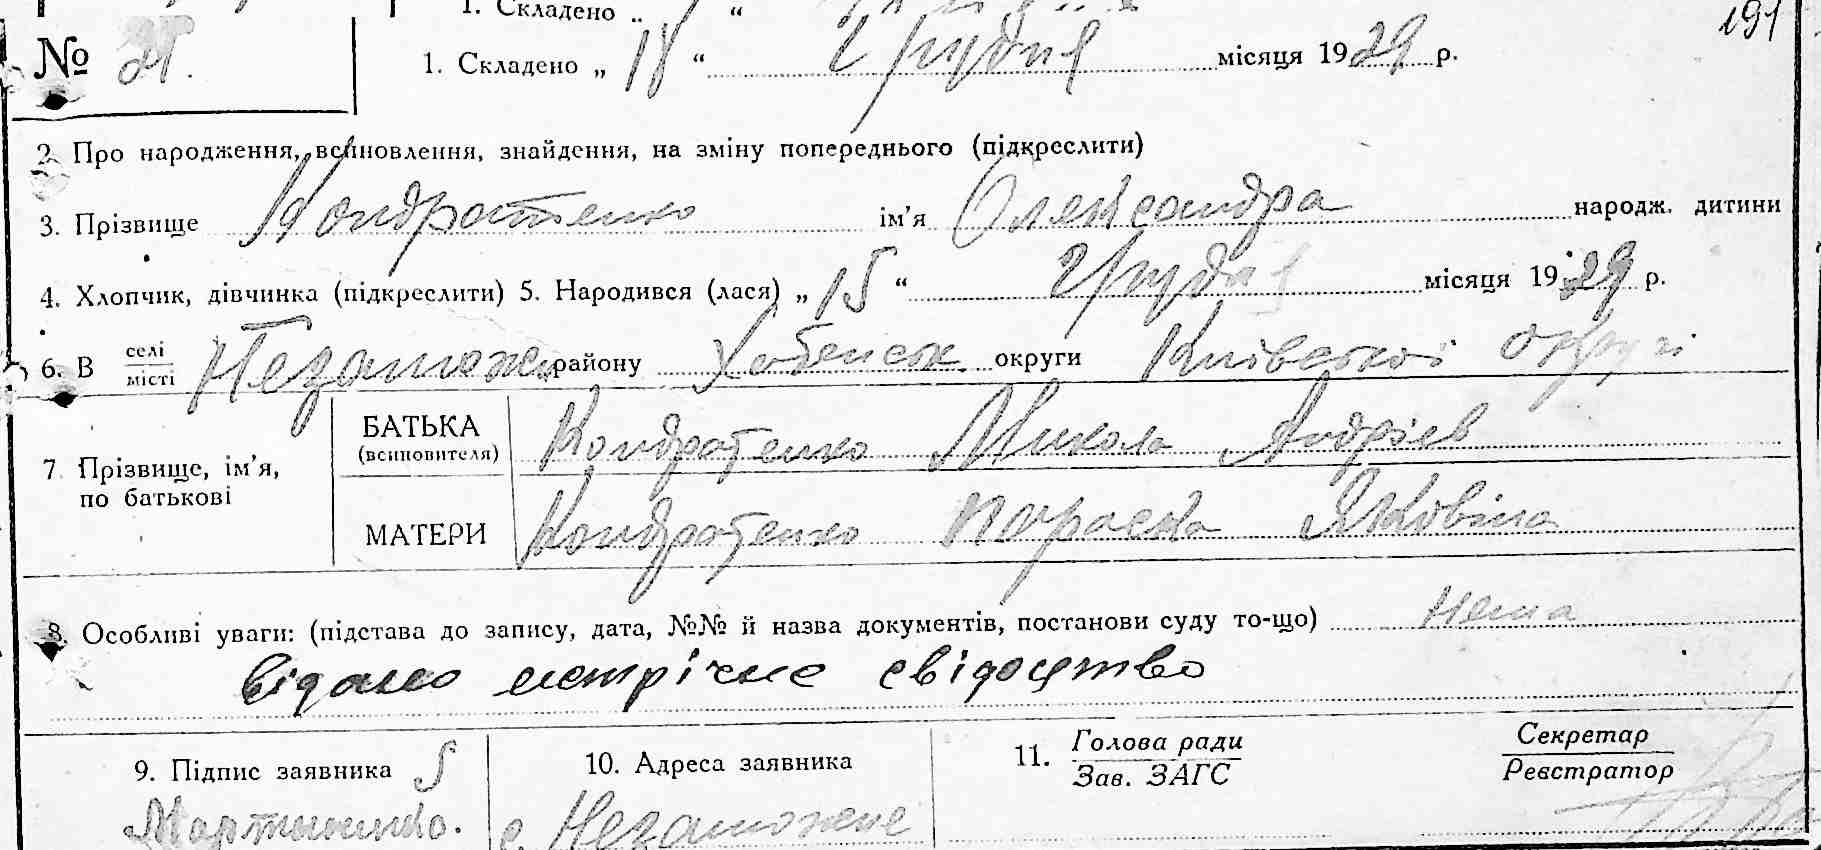 1. Складено „ “
191
№ 25.
1. Складено „ 18 “ Грудня місяця 1929 р.
2. Про народження, всиновлення, знайдення, на зміну попереднього (підкреслити)
3. Прізвище Кондратенко ім’я Олександра народж. дитини
4. Хлопчик, дівчинка (підкреслити) 5. Народився (лася) „ 15 “ Грудня місяця 1929 р.
6. В селі/місті Незамож. району Хабенськ. округи Київської округи
7. Прізвище, ім’я, по батькові
БАТЬКА (всиновителя) Кондратенко Микола Андріев
МАТЕРИ Кондратенко Параска Яковівна
8. Особливі уваги: (підстава до запису, дата, №№ й назва документів, постанови суду то-що) нема
видано метрічне свідоцтво
9. Підпис заявника
Мартиненко.
10. Адреса заявника
с. Незаможне
11. Голова ради
Зав. ЗАГС
Секретар
Реєстратор